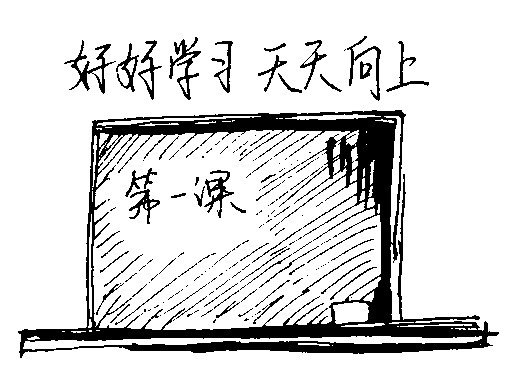 好好学习 天天向上
第一课